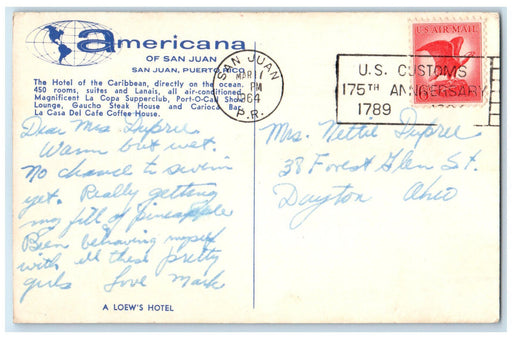 americana
OF SAN JUAN
SAN JUAN, PUERTO RICO
The Hotel of the Caribbean, directly on the ocean.
450 rooms, suites and Lanais, all air-conditioned.
Magnificent La Copa Supperclub, Port-O-Call Show
Lounge, Gaucho Steak House and Carioca Bar,
La Casa Del Cafe Coffee House.
Dear Mrs. Dupree
Warm but wet.
No chance to swim
yet. Really getting
my fill of pineapple
Been behaving myself
with all these pretty
girls Love Mark
A LOEW'S HOTEL
SAN JUAN
MAR 1
PM
1964
P.R.
U.S. CUSTOMS
175TH ANNIVERSARY
1789
U.S. AIR MAIL
6
Mrs. Nettie Dupree
38 Forest Glen St.
Dayton Ohio